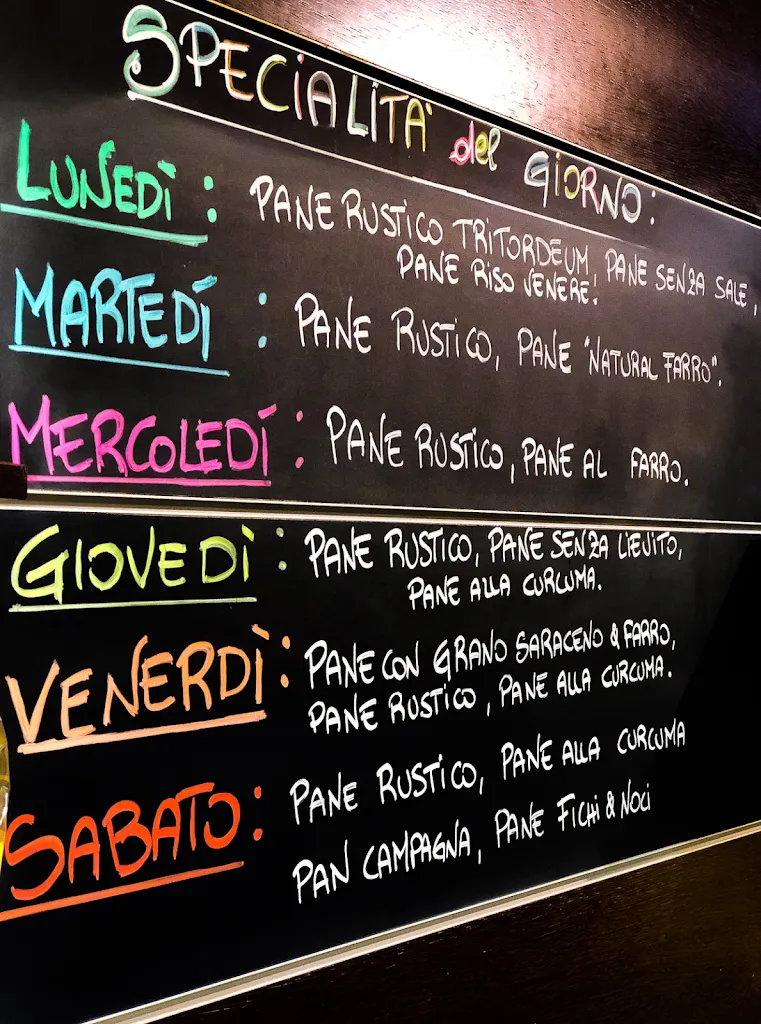 SPECIALITA' del GIORNO:
LUNEDÌ: PANE RUSTICO TRITORDEUM, PANE SENZA SALE,
PANE RISO VENERE!
MARTEDÍ: PANE RUSTICO, PANE "NATURAL FARRO".
MERCOLEDÍ: PANE RUSTICO, PANE AL FARRO.
GIOVEDÌ: PANE RUSTICO, PANE SENZA LIEVITO,
PANE ALLA CURCUMA.
VENERDÌ: PANE CON GRANO SARACENO & FARRO,
PANE RUSTICO, PANE ALLA CURCUMA.
SABATO: PANE RUSTICO, PANE ALLA CURCUMA
PAN CAMPAGNA, PANE FICHI & NOCI